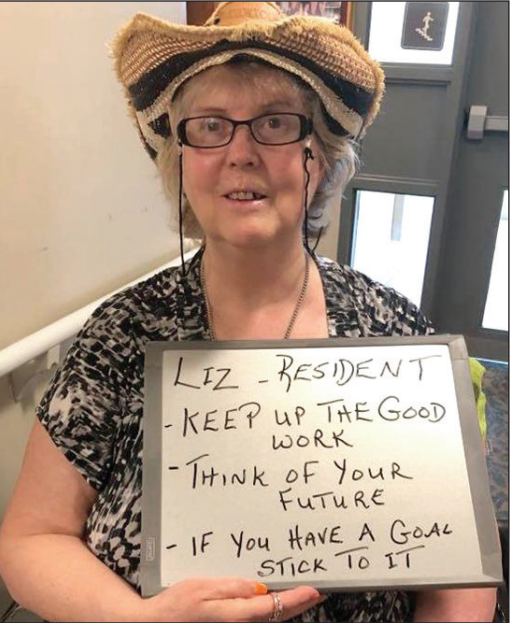 LIZ - RESIDENT
- KEEP UP THE GOOD
WORK
- THINK OF YOUR
FUTURE
- IF YOU HAVE A GOAL
STICK TO IT